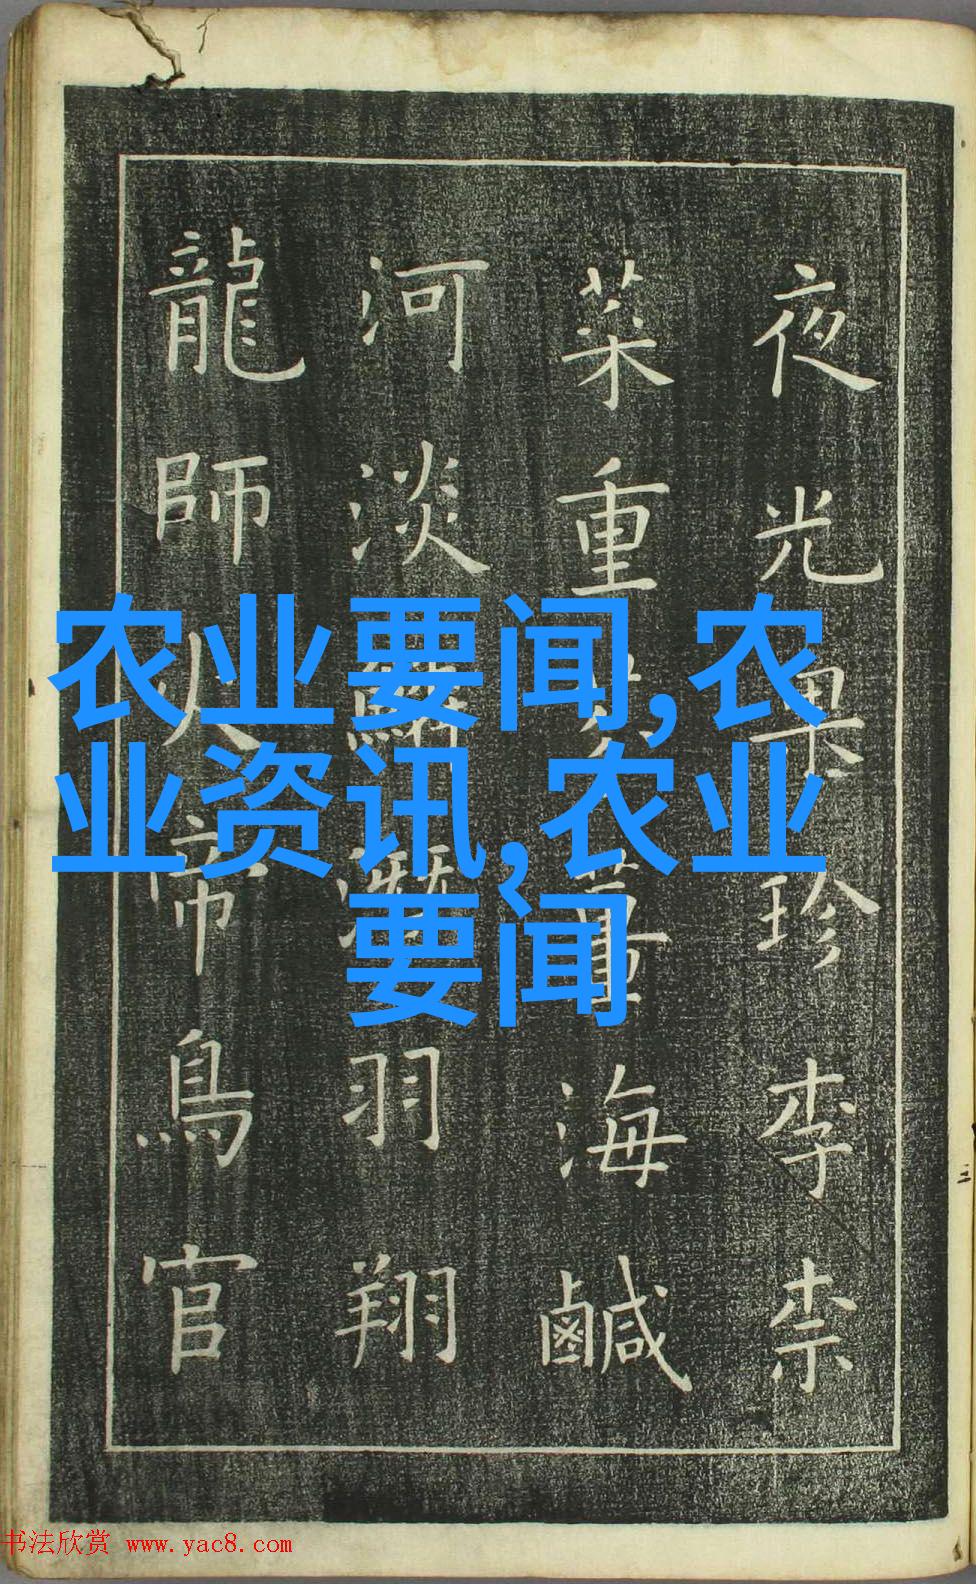 夜光果珍李柰
菜重芥薑海鹹
河淡鱗潛羽翔
龍師火帝鳥官
农业要闻,农
业资讯,农业
要闻
书法欣赏 www.yac8.com